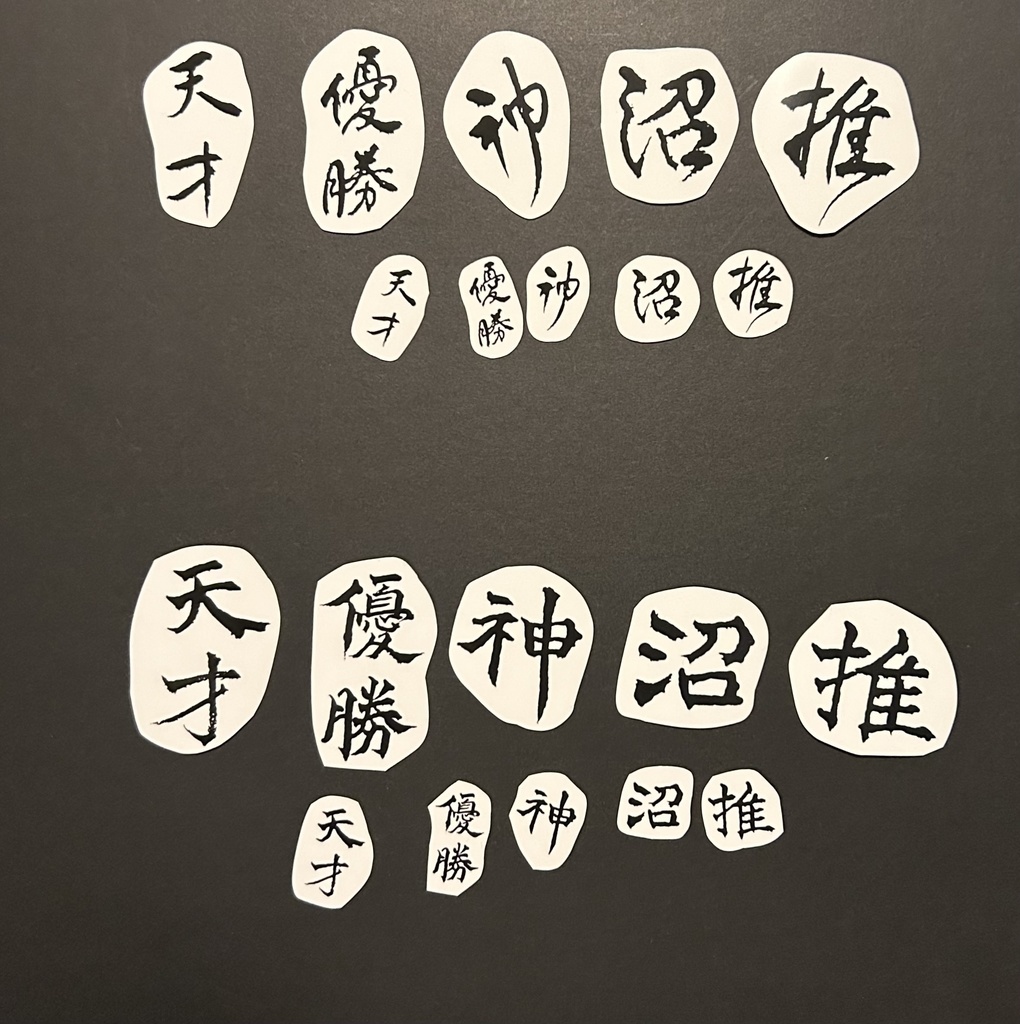 天才 優勝 神 沼 推
天才 優勝 神 沼 推
天才 優勝 神 沼 推
天才 優勝 神 沼 推